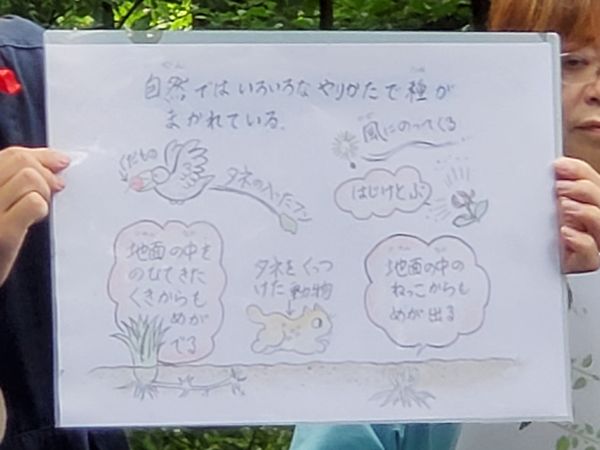 自然ではいろいろなやりかたで種が
まかれている。
風にのってくる
くだもの
タネの入ったフン
はじけとぶ
地面の中を
のびてきた
くきからも
めが
でる
タネをくっつ
けた動物
地面の中の
ねっこからも
めが出る